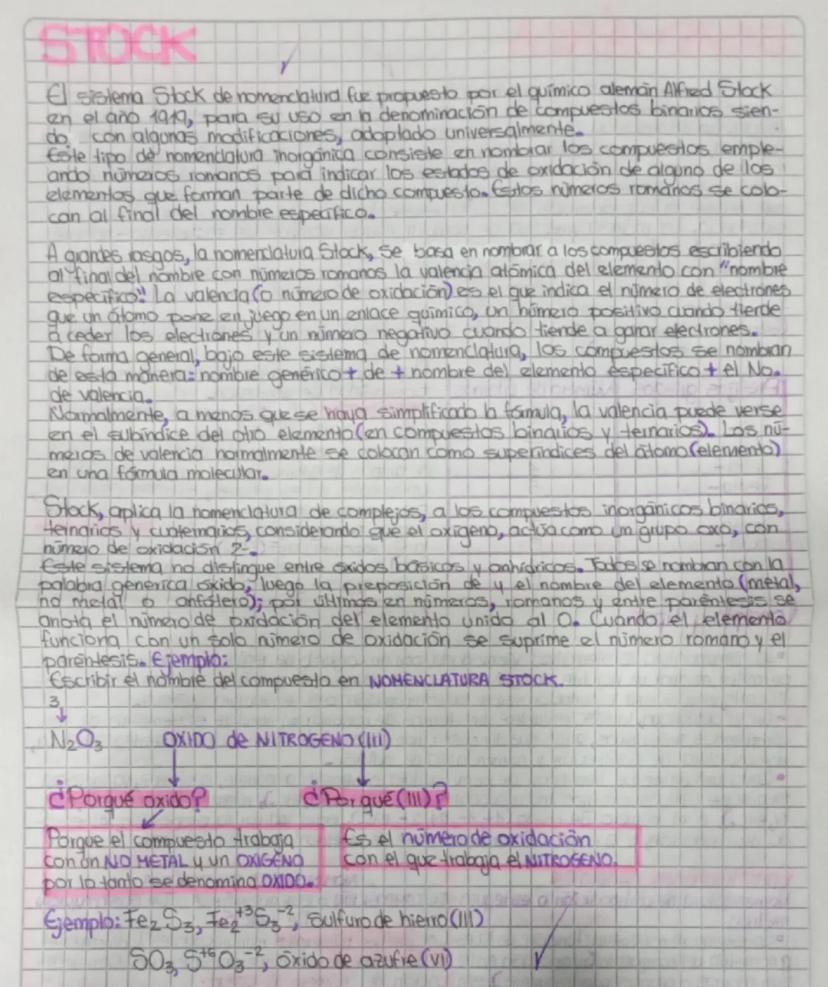 STOCK
El sistema Stock de nomenclatura fue propuesto por el químico alemán Alfred Stock
en el año 1919, para su uso en la denominación de compuestos binarios sien-
do, con algunas modificaciones, adoptado universalmente.
Este tipo de nomenclatura inorgánica consiste en nombrar los compuestos emple-
ando números romanos para indicar los estados de oxidación de alguno de los
elementos que forman parte de dicho compuesto. Estos números romanos se colo-
can al final del nombre específico.
A grandes rasgos, la nomenclatura Stock, se basa en nombrar a los compuestos escribiendo
al final del nombre con números romanos la valencia atómica del elemento con "nombre
específico". La valencia (o número de oxidación) es el que indica el número de electrones
que un átomo pone en juego en un enlace químico, un número positivo cuando tiende
a ceder los electrones y un número negativo cuando tiende a ganar electrones.
De forma general, bajo este sistema de nomenclatura, los compuestos se nombran
de esta manera: nombre genérico + de + nombre del elemento específico + el No.
de valencia.
Normalmente, a menos que se haya simplificado la fórmula, la valencia puede verse
en el subíndice del otro elemento (en compuestos binarios y ternarios). Los nú-
meros de valencia normalmente se colocan como superíndices del átomo (elemento)
en una fórmula molecular.
Stock, aplica la nomenclatura de complejos, a los compuestos inorgánicos binarios,
ternarios y cuaternarios, considerando que el oxígeno, actúa como un grupo oxo, con
número de oxidación 2-.
Este sistema no distingue entre óxidos básicos y anhídricos. Todos se nombran con la
palabra generica óxido; luego la preposición de y el nombre del elemento (metal,
no metal o anfótero); por últimos en números, romanos y entre paréntesis se
anota el número de oxidación del elemento unido al O. Cuando el elemento
funciona con un solo número de oxidación se suprime el número romano y el
paréntesis. Ejemplo:
Escribir el nombre del compuesto en NOMENCLATURA STOCK.
3
↓
N₂O₃ OXIDO de NITROGENO (III)
¿Porqué oxido? ¿Por qué (III)?
Porque el compuesto trabaja Es el número de oxidación
con un NO METAL y un OXIGENO con el que trabaja el NITROGENO.
por lo tanto se denomina OXIDO.
Ejemplo: Fe₂S₃, Fe₂⁺³S₃⁻², sulfuro de hierro (III)
SO₃, S⁺⁶O₃⁻², óxido de azufre (VI)